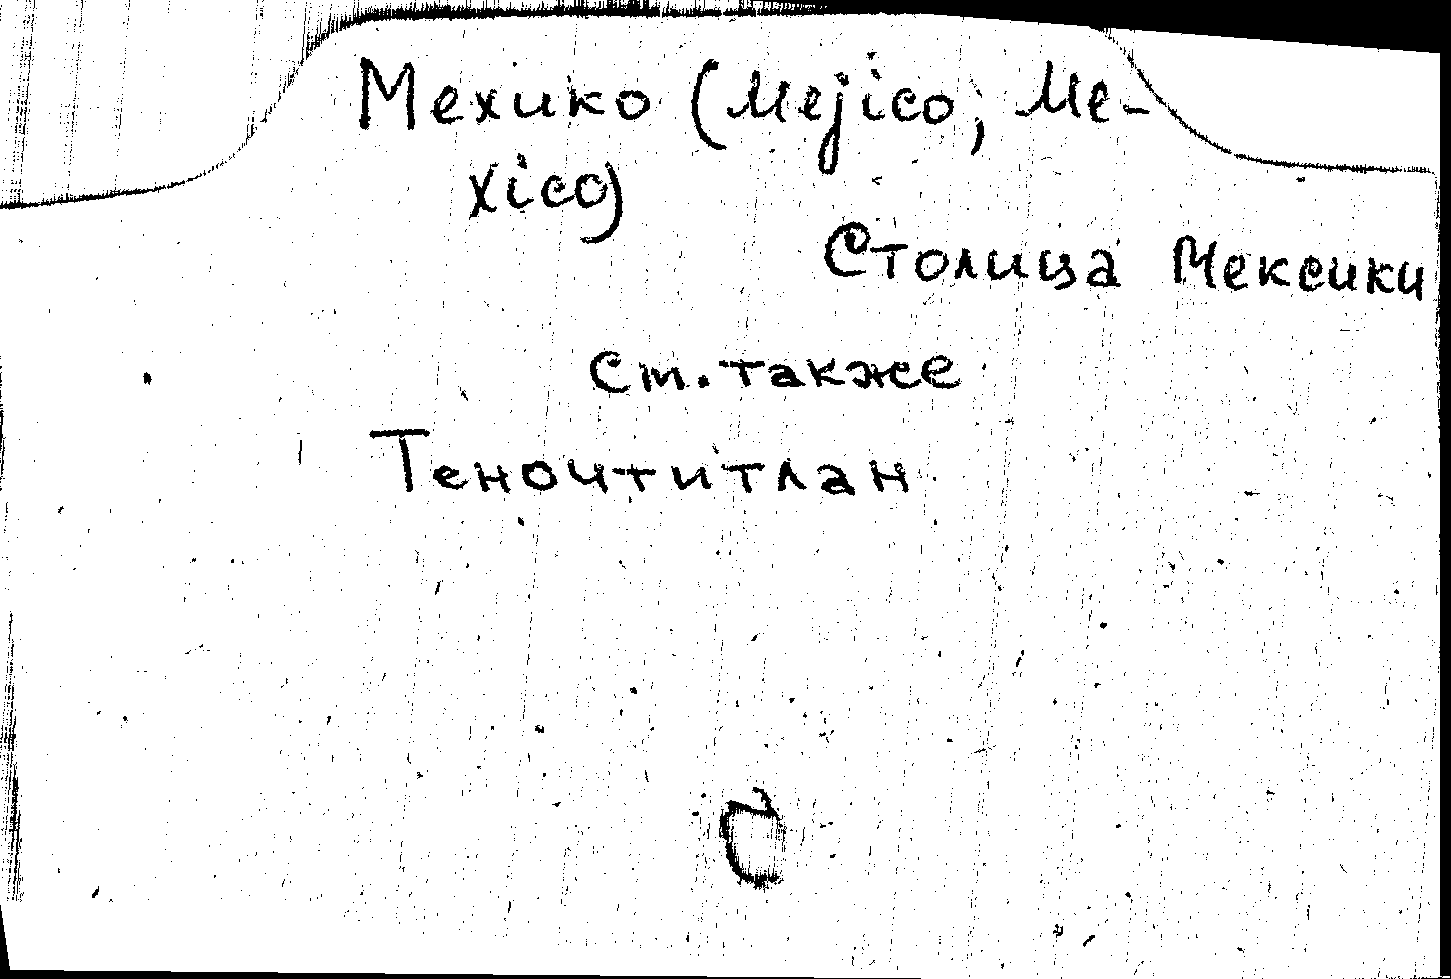 Мехико (Mejico; Me-
xico)
Столица Мексики
См. также
Теночтитлан